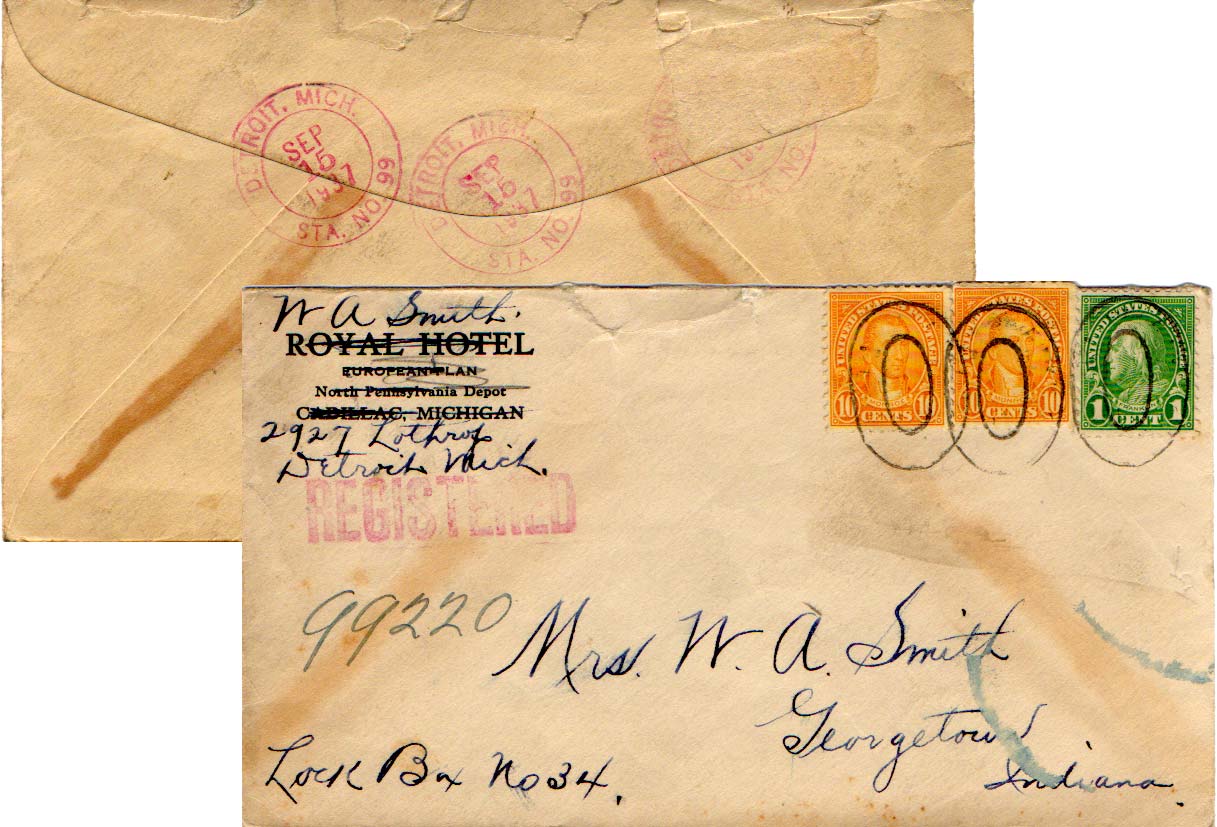 DETROIT, MICH.
SEP
15
1937
STA. NO. 99
DETROIT, MICH.
SEP
15
1937
STA. NO. 99
W A Smith.
ROYAL HOTEL
EUROPEAN PLAN
North Pennsylvania Depot
CADILLAC, MICHIGAN
2927 Lothrop
Detroit Mich.
REGISTERED
UNITED STATES POSTAGE
MONROE
10 CENTS 10
UNITED STATES POSTAGE
MONROE
10 CENTS 10
UNITED STATES POSTAGE
FRANKLIN
1 CENT 1
99220
Mrs. W. A. Smith
Georgetown
Indiana.
Lock Box No 34.